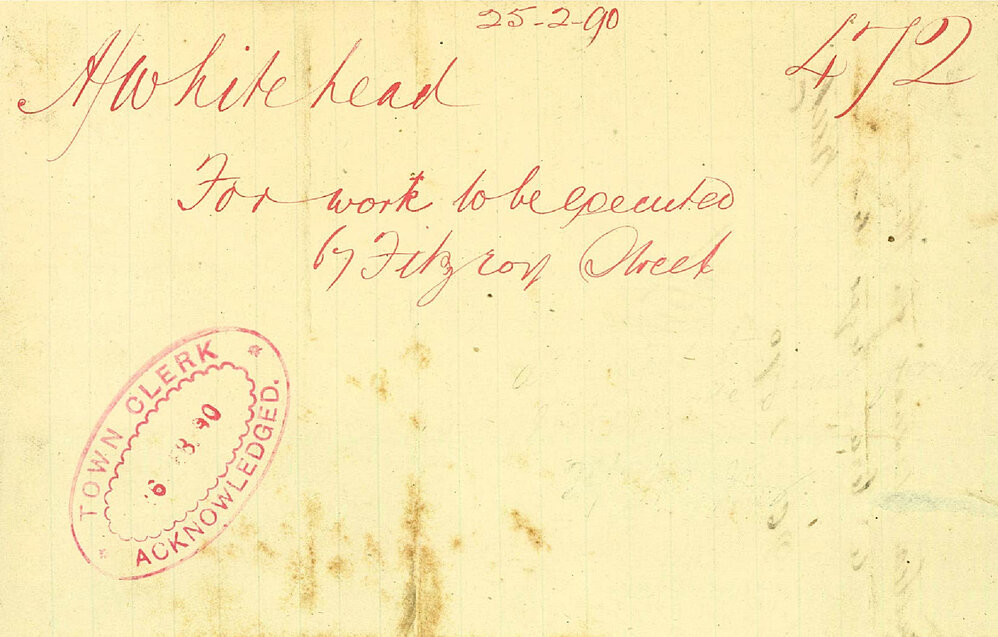 25-2-90
472
A J Whitehead
For work to be executed
67 Fitzroy Street
TOWN CLERK
6 3 90
ACKNOWLEDGED.